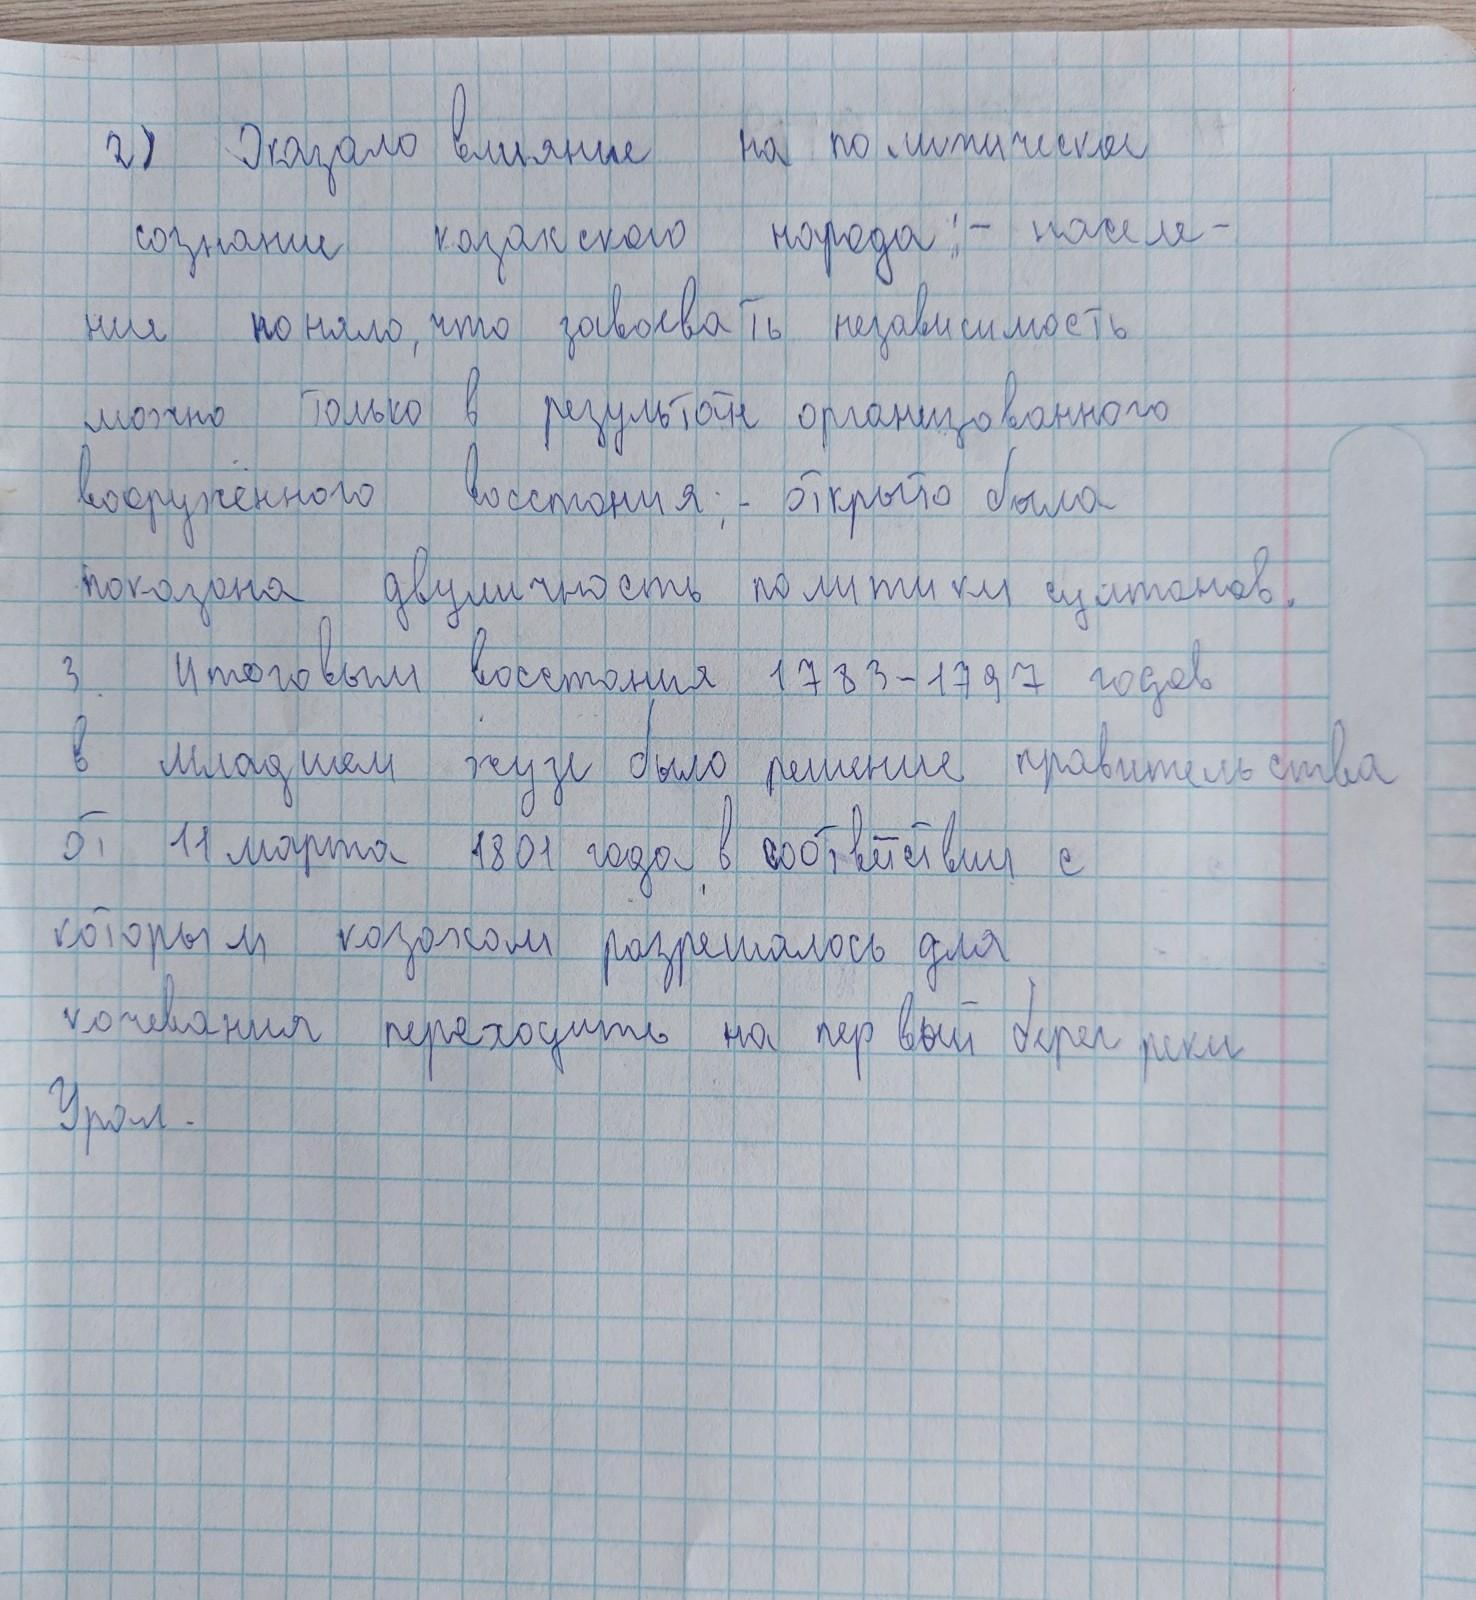 2) Оказало влияние на политическое
сознание казахского народа; - населе-
ние поняло, что завоевать независимость
можно только в результате организованного
вооружённого восстания; - открыто была
показана двуличность политики султанов.
3. Итоговым восстания 1783-1797 годов
в младшем жузе было решение правительства
от 11 марта 1801 года, в соответствии с
которым казахам разрешалось для
кочевания переходить на первый берег реки
Урал.